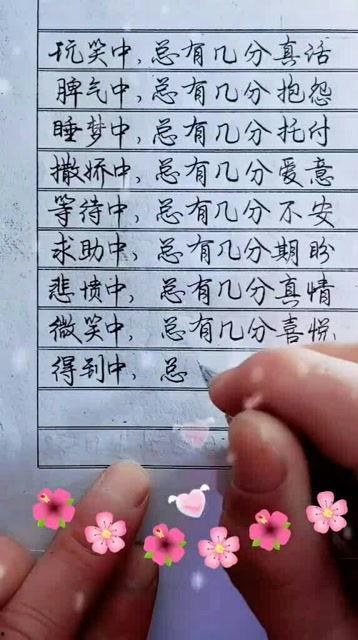 玩笑中,总有几分真话
脾气中,总有几分抱怨
睡梦中,总有几分托付
撒娇中,总有几分爱意
等待中,总有几分不安
求助中,总有几分期盼
悲愤中,总有几分真情
微笑中,总有几分喜悦
得到中,总